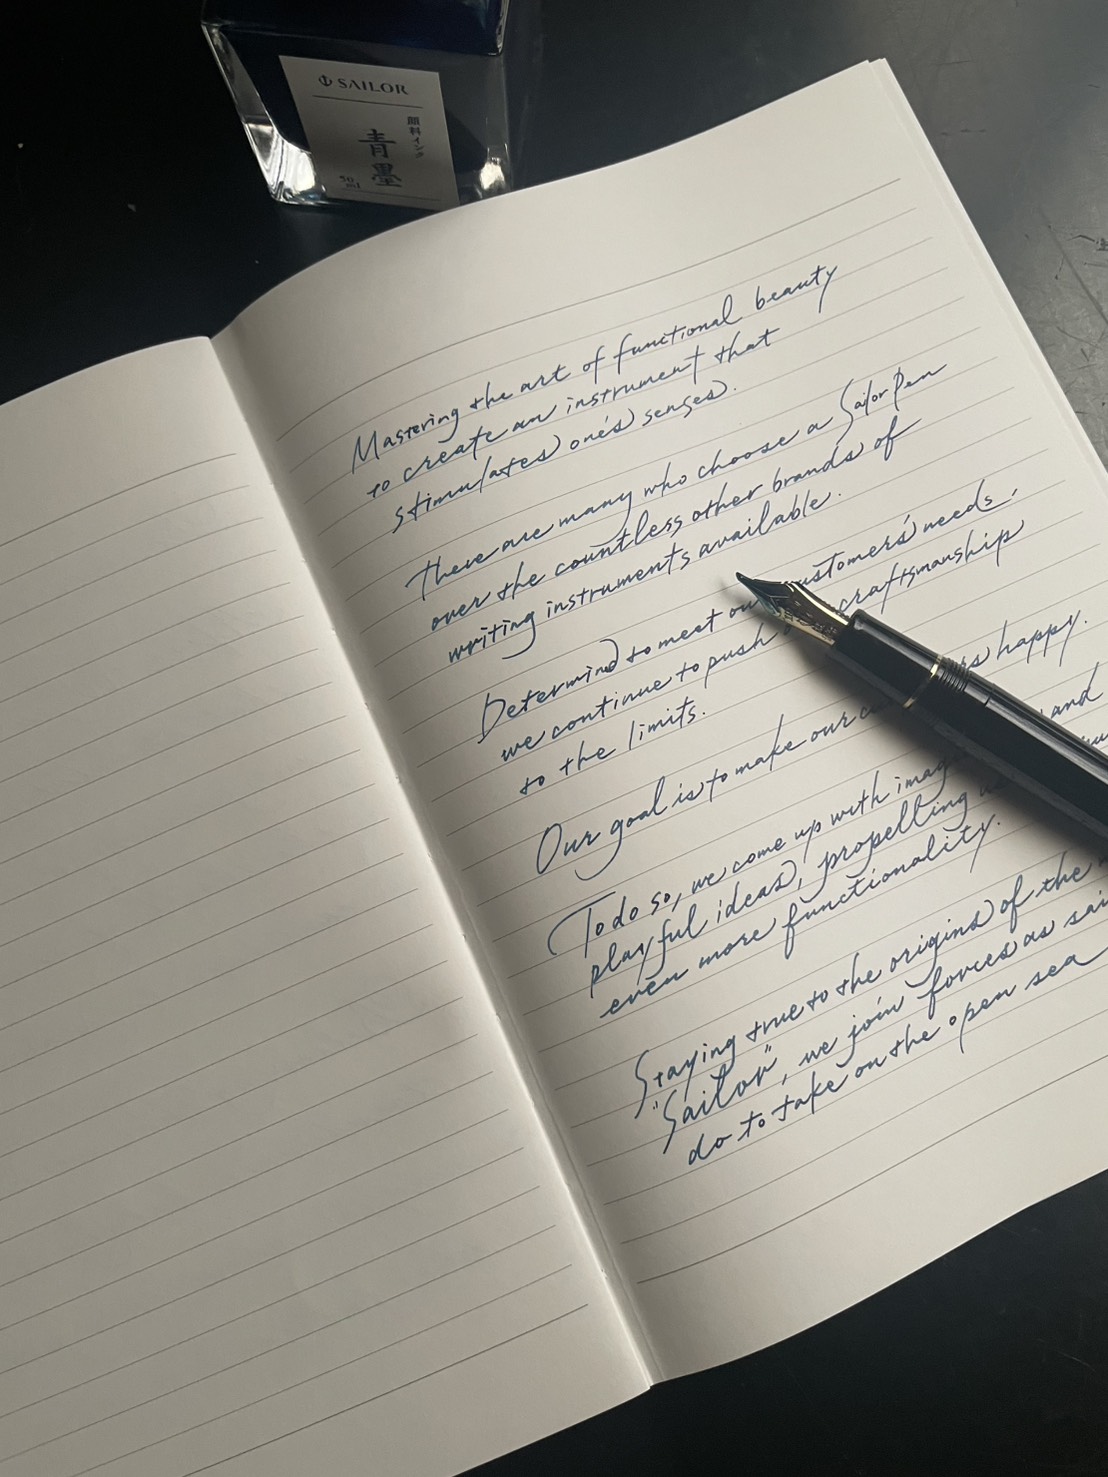 SAILOR
顔料インク
青墨
50 ml
Mastering the art of functional beauty
to create an instrument that
stimulates one's senses.
There are many who choose a Sailor Pen
over the countless other brands of
writing instruments available.
Determind to meet customers' needs,
we continue to push craftsmanship
to the limits.
Our goal is to make our happy.
To do so, we come up with and
playful ideas, propelling
even more functionality.
Staying true to the origins of the
"Sailor", we join forces as
do to take on the open sea